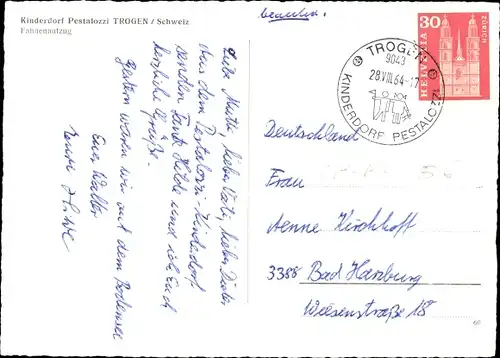 Kinderdorf Pestalozzi TROGEN / Schweiz
Fahnenaufzug
Liebe Mutti, lieber Vati, lieber Dieter
Aus dem Pestalozzi-Kinderdorf
senden Tante Hilde und ich Euch
herzliche Grüße.
Gestern waren wir auf dem Bodensee
Euer Walter
TROGEN
9043
28.VIII.64-17
KINDERDORF PESTALOZZI
30
HELVETIA
ZÜRICH
Deutschland
Frau
Aenne Kirchhoff
3388 Bad Harzburg
Wiesenstraße 18